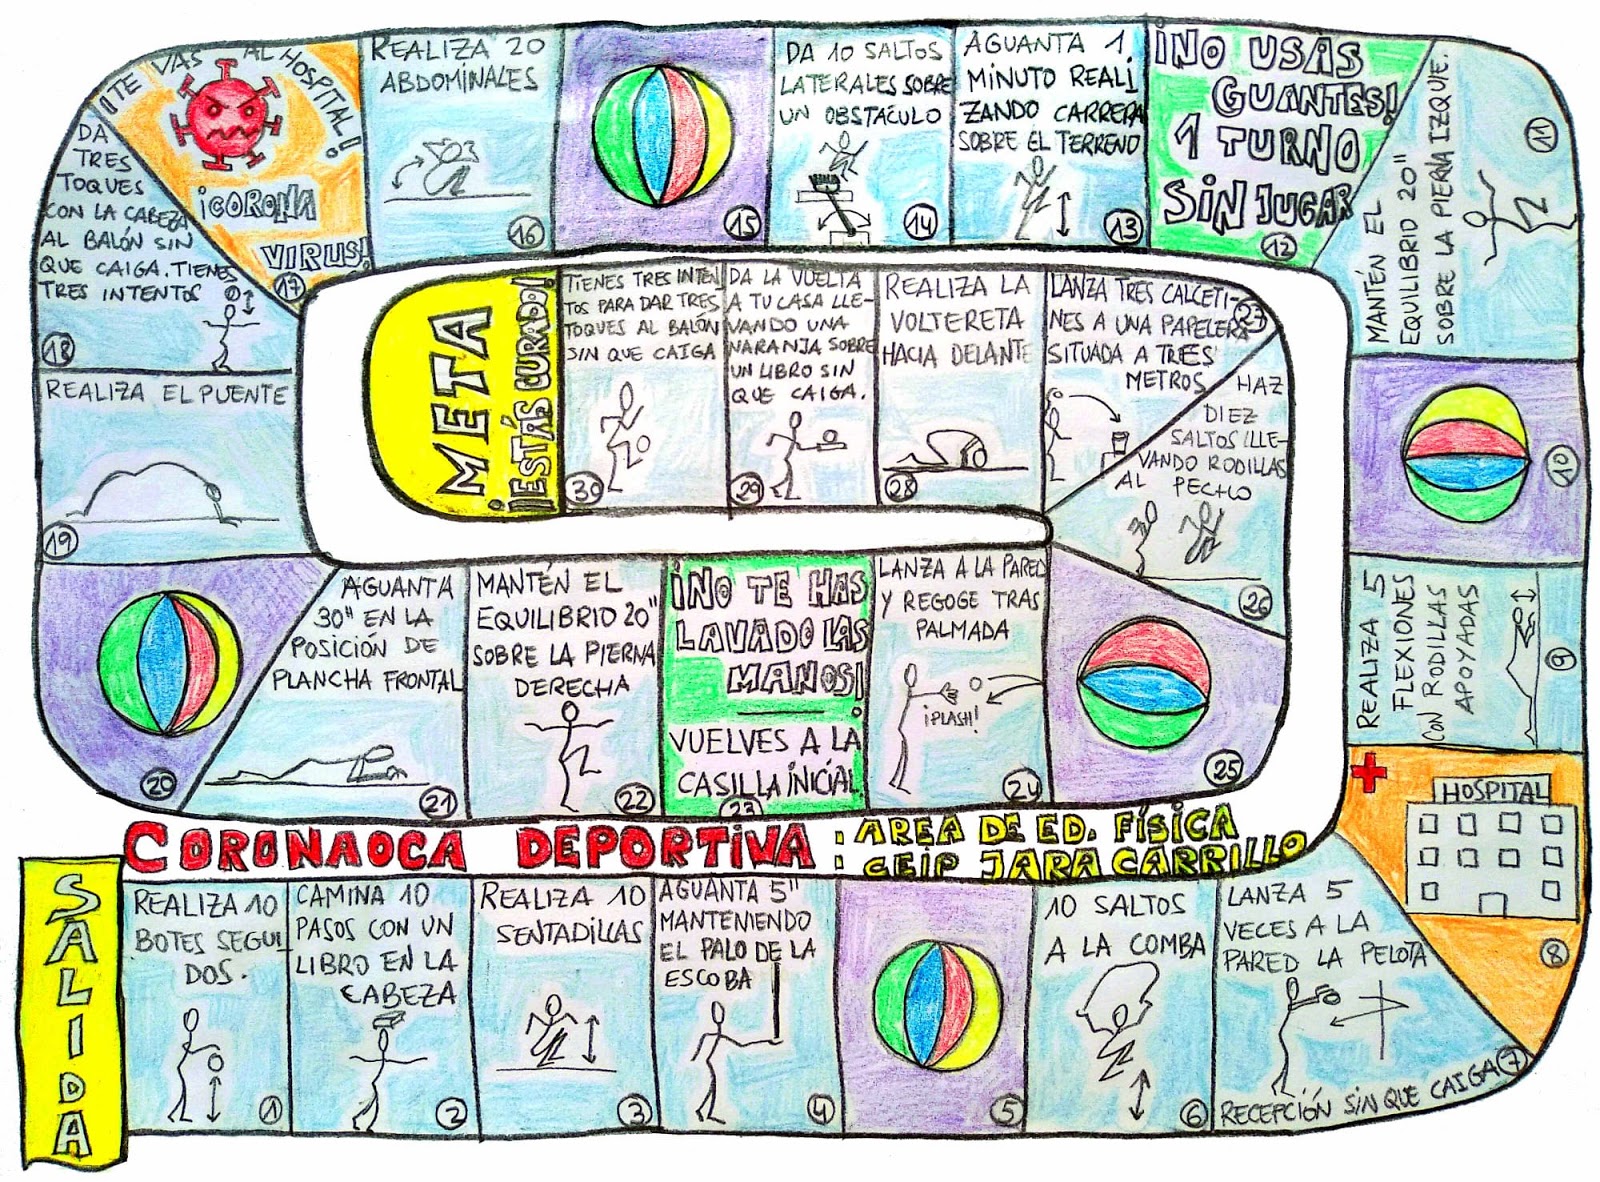 CORONAOCA DEPORTIVA : AREA DE ED. FÍSICA
CEIP JARA CARRILLO
SALIDA
REALIZA 10
BOTES SEGUI
DOS.
1
CAMINA 10
PASOS CON UN
LIBRO EN LA
CABEZA
2
REALIZA 10
SENTADILLAS
3
AGUANTA 5"
MANTENIENDO
EL PALO DE LA
ESCOBA
4
5
10 SALTOS
A LA COMBA
6
LANZA 5
VECES A LA
PARED LA PELOTA
RECEPCIÓN SIN QUE CAIGA
7
HOSPITAL
8
REALIZA 5
FLEXIONES
CON RODILLAS
APOYADAS
9
10
MANTÉN EL
EQUILIBRIO 20"
SOBRE LA PIERNA IZQUIE.
11
¡NO USAS
GUANTES!
1 TURNO
SIN JUGAR
12
AGUANTA 1
MINUTO REALI
ZANDO CARRERA
SOBRE EL TERRENO
13
DA 10 SALTOS
LATERALES SOBRE
UN OBSTÁCULO
14
15
REALIZA 20
ABDOMINALES
16
¡TE VAS AL HOSPITAL!
¡CORONA
VIRUS!
17
DA
TRES
TOQUES
CON LA CABEZA
AL BALÓN SIN
QUE CAIGA. TIENES
TRES INTENTOS
18
REALIZA EL PUENTE
19
20
AGUANTA
30" EN LA
POSICIÓN DE
PLANCHA FRONTAL
21
MANTÉN EL
EQUILIBRIO 20"
SOBRE LA PIERNA
DERECHA
22
¡NO TE HAS
LAVADO LAS
MANOS!
VUELVES A LA
CASILLA INICIAL
23
LANZA A LA PARED
Y REGOGE TRAS
PALMADA
¡PLASH!
24
25
HAZ
DIEZ
SALTOS LLE-
VANDO RODILLAS
AL PECHO
26
LANZA TRES CALCETI-
NES A UNA PAPELERA
SITUADA A TRES
METROS
27
REALIZA LA
VOLTERETA
HACIA DELANTE
28
DA LA VUELTA
A TU CASA LLE-
VANDO UNA
NARANJA SOBRE
UN LIBRO SIN
QUE CAIGA.
29
TIENES TRES INTEN
TOS PARA DAR TRES
TOQUES AL BALÓN
SIN QUE CAIGA
30
META
¡ESTÁS CURADO!